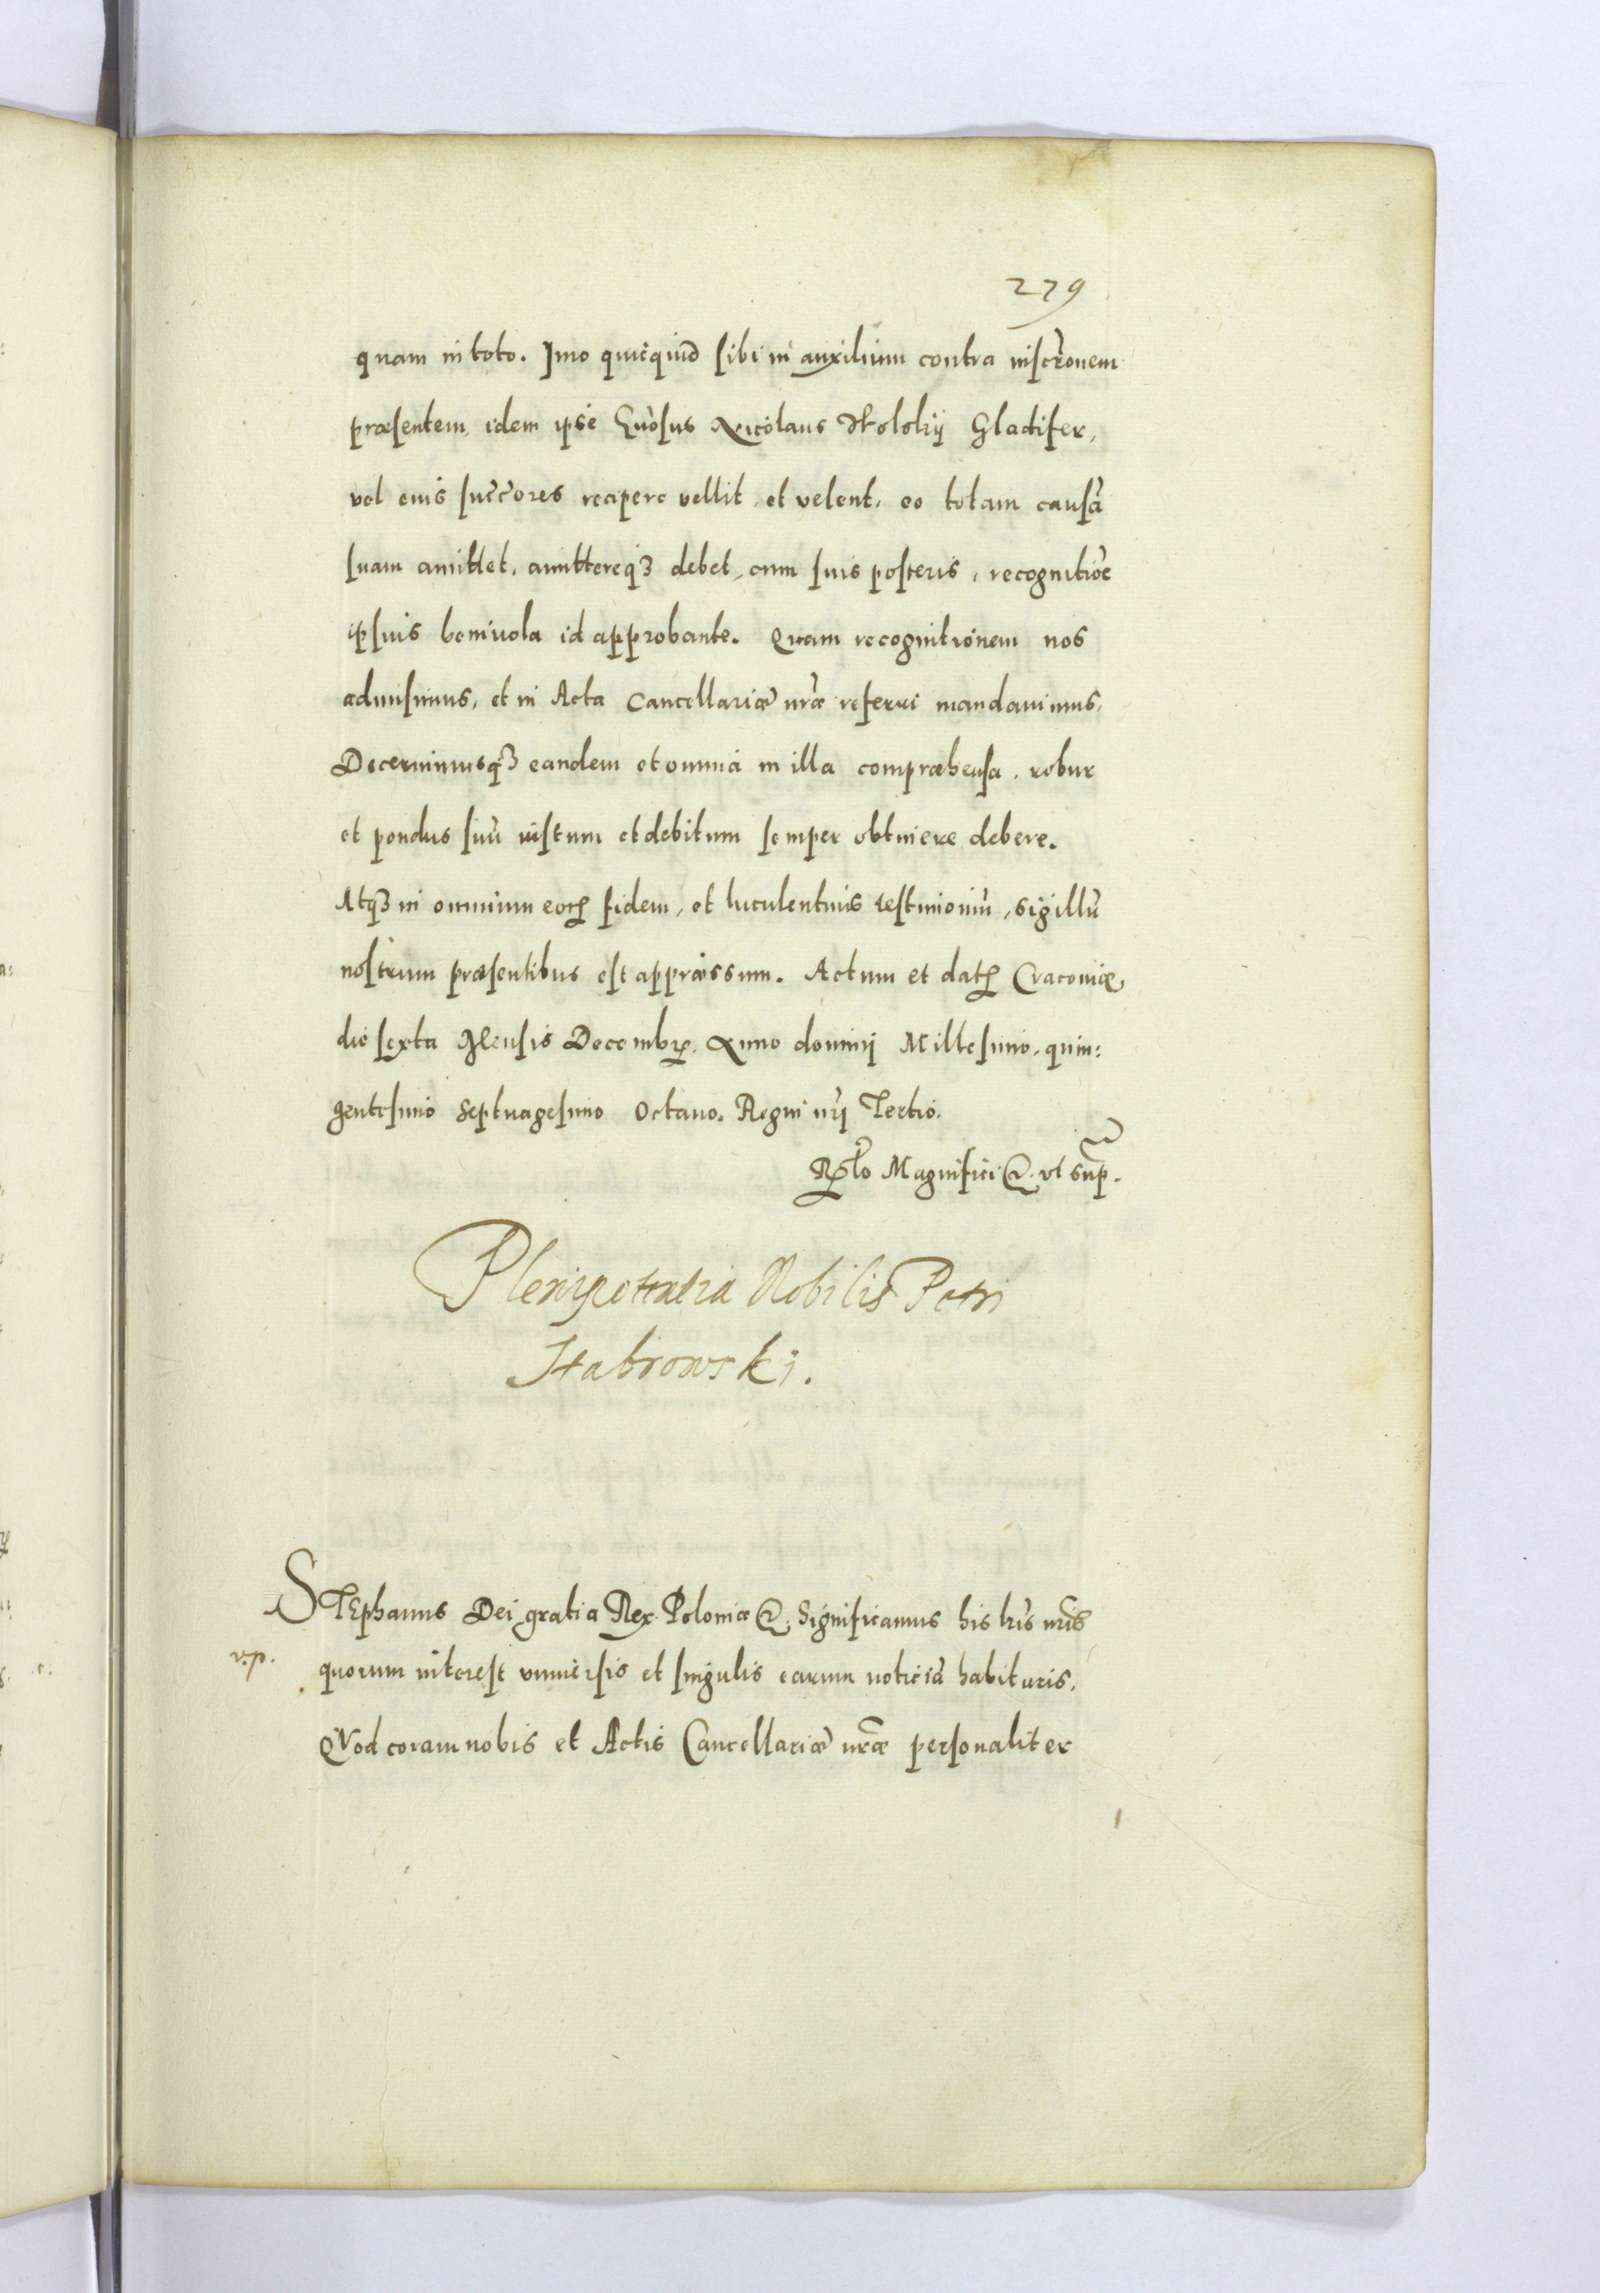 279
quam in toto. Imo quicquid sibi in auxilium contra inscr̃onem
præsentem, idem ipse Gñosus Nicolaus Wolskij Gladifer,
vel eius succ̃ores recipere vellit, et velent, eo totam causã
suam amittet, amittereq3 debet, cum suis posteris, recognitiõe
ipsius benivola id approbante. Quam recognitionem nos
admisimus, et in Acta Cancellariæ nr̃æ referri mandavimus,
Decernimusq3 eandem et omnia in illa compræhensa, robur
et pondus suũ iustum et debitum semper obtinere debere.
Atq3 in omnium eorꝝ fidem, et luculentius testimoniũ, sigillũ
nostrum præsentibus est appræssum. Actum et datꝝ Cracoviæ,
die sexta Mensis Decembꝝ. Anno dominj Millesimo, quin:
gentesimo Septuagesimo Octavo. Regni nr̃j Tertio.
Rel̃o Magnifici &. vt sup̃.
Plenipotentia Nobilis Petri
Stabrowski.
STEphanus Dei gratia Rex Poloniæ &. Significamus his lr̃is nr̃is
v.p.
quorum interest vniversis et singulis earum noticiã habituris.
QVod coram nobis et Actis Cancellariæ nr̃æ personaliter